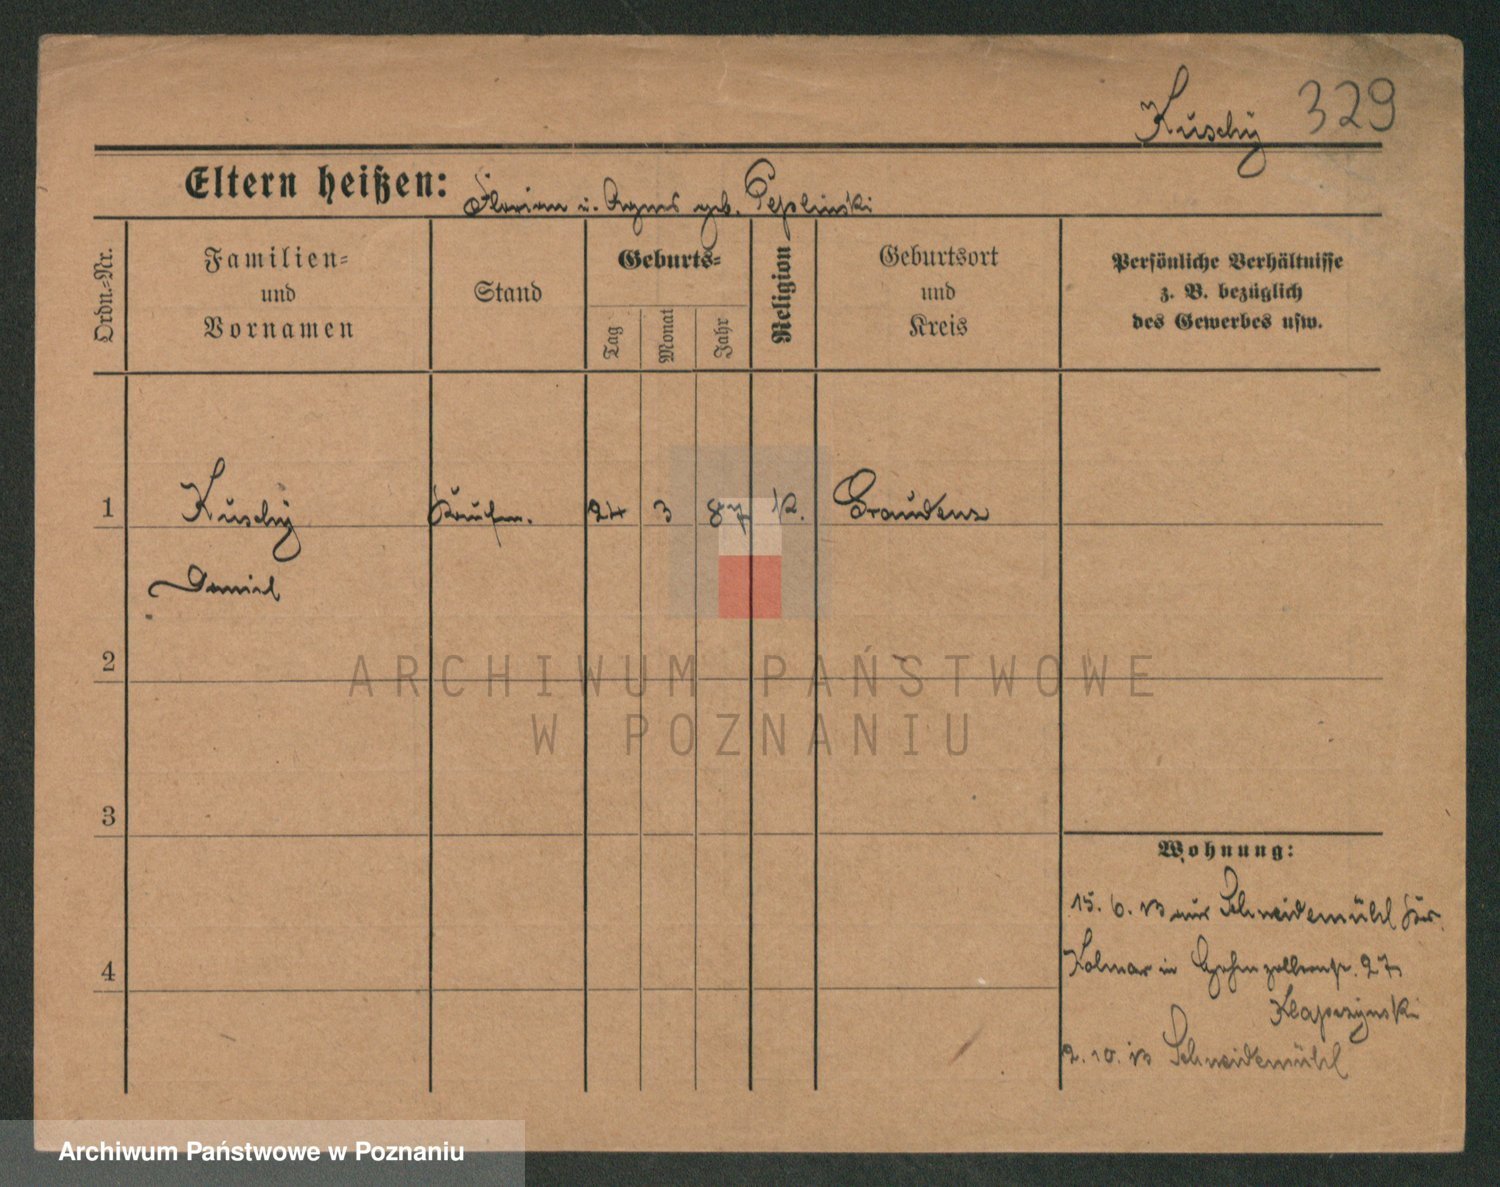 Kuschÿ 329
Eltern heißen: Florian u. Agnes geb. Peplinski
Ordn.=Nr.
Familien=
und
Vornamen
Stand
Geburts=
Tag
Monat
Jahr
Religion
Geburtsort
und
Kreis
Persönliche Verhältnisse
z. B. bezüglich
des Gewerbes usw.
1 Kuschÿ 24 3 87 K. Graudenz
Daniel
2
3
4
Wohnung:
15. 6. 13 aus Schneidemühl
Kolmar in Hohenzollernstr. 27
Klapczynski
2. 10. 13 Schneidemühl
ARCHIWUM PAŃSTWOWE
W POZNANIU
Archiwum Państwowe w Poznaniu